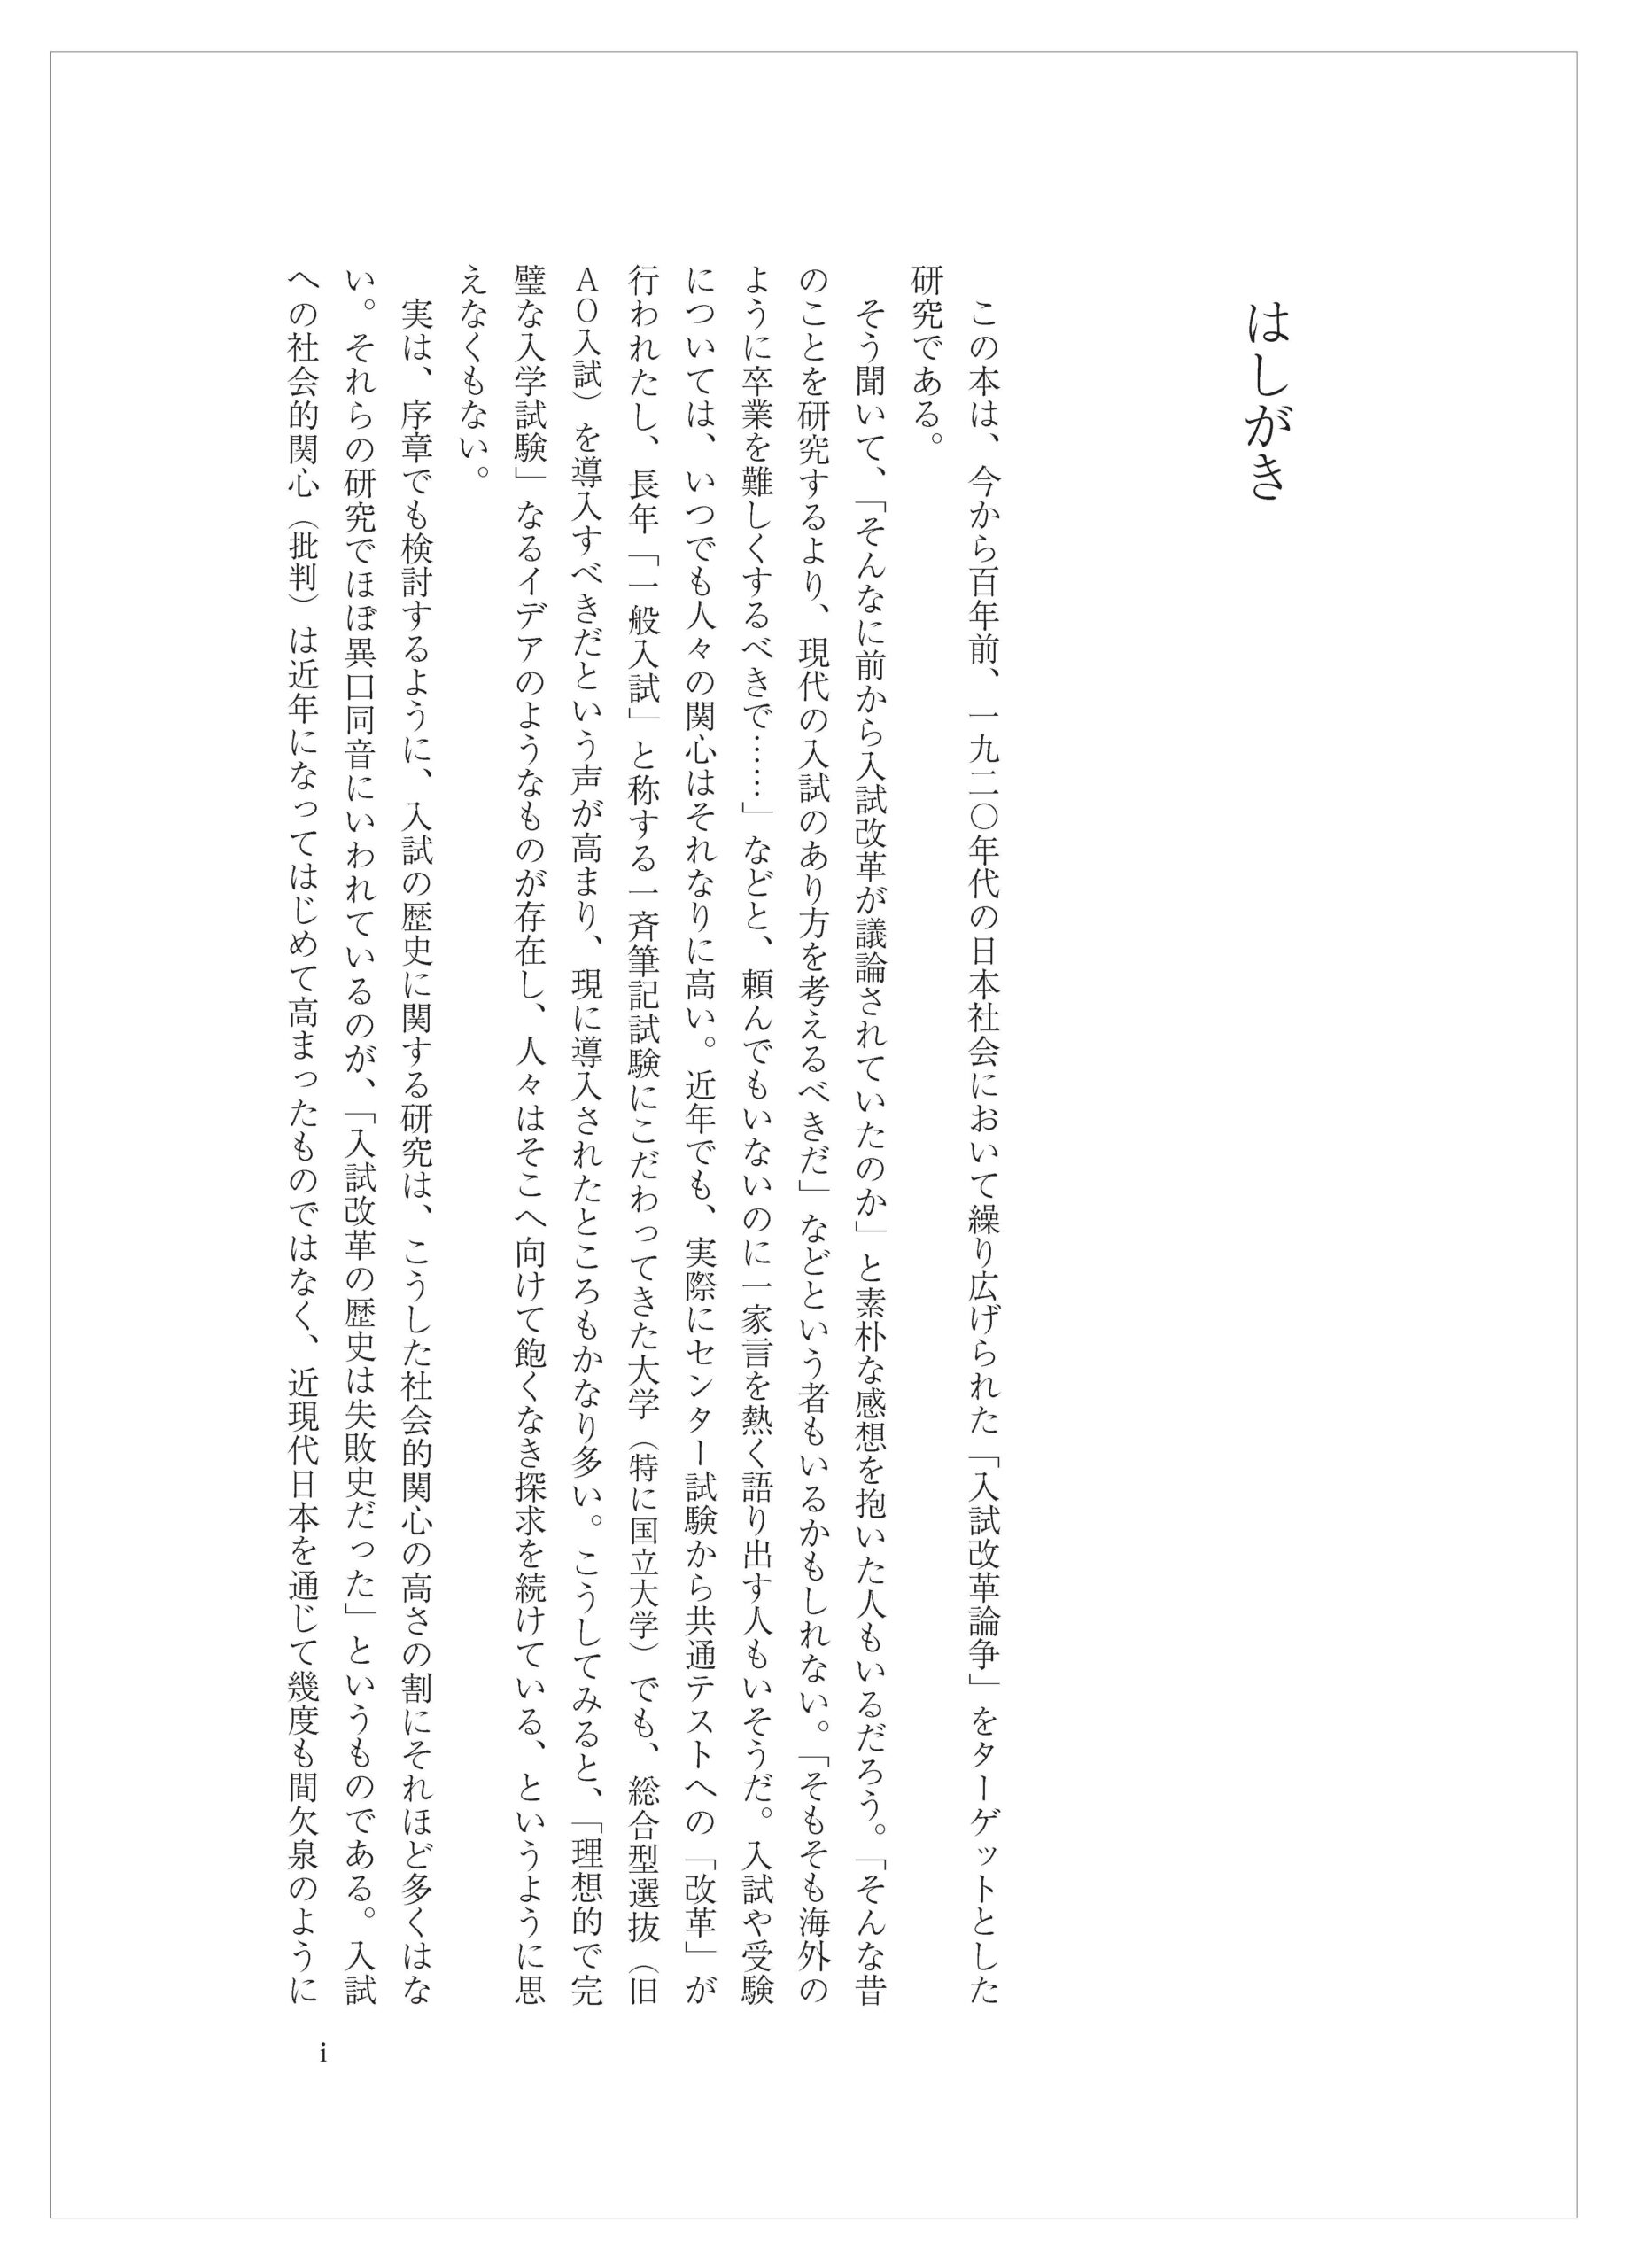 はしがき
　この本は、今から百年前、一九二〇年代の日本社会において繰り広げられた「入試改革論争」をターゲットとした
研究である。
　そう聞いて、「そんなに前から入試改革が議論されていたのか」と素朴な感想を抱いた人もいるだろう。「そんな昔
のことを研究するより、現代の入試のあり方を考えるべきだ」などという者もいるかもしれない。「そもそも海外の
ように卒業を難しくするべきで……」などと、頼んでもいないのに一家言を熱く語り出す人もいそうだ。入試や受験
については、いつでも人々の関心はそれなりに高い。近年でも、実際にセンター試験から共通テストへの「改革」が
行われたし、長年「一般入試」と称する一斉筆記試験にこだわってきた大学（特に国立大学）でも、総合型選抜（旧
ＡＯ入試）を導入すべきだという声が高まり、現に導入されたところもかなり多い。こうしてみると、「理想的で完
璧な入学試験」なるイデアのようなものが存在し、人々はそこへ向けて飽くなき探求を続けている、というように思
えなくもない。
　実は、序章でも検討するように、入試の歴史に関する研究は、こうした社会的関心の高さの割にそれほど多くはな
い。それらの研究でほぼ異口同音にいわれているのが、「入試改革の歴史は失敗史だった」というものである。入試
への社会的関心（批判）は近年になってはじめて高まったものではなく、近現代日本を通じて幾度も間欠泉のように
i